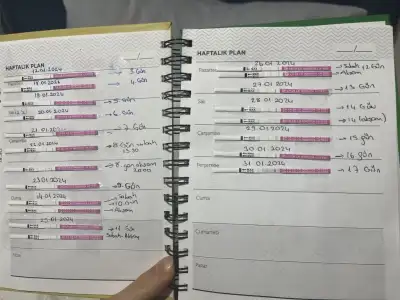 HAFTALIK PLAN
17.01.2024
3 Gün
18.01.2024
4. Gün
19.01.2024
5. Gün
20.01.2024
6. Gün
21.01.2024
7 Gün
Çarşamba
22.01.2024
8 Gün sabah
8. gün akşam
23.01.2024
9. Gün
Cuma
24.01.2024
Sabah
10. Gün
Akşam
25.01.2024
11 Gün
Sabah Akşam
HAFTALIK PLAN
26.01.2024
Pazartesi
Sabah 12 Gün
Akşam
27.01.2024
13 Gün
Salı
28.01.2024
14 Gün
14 (akşam)
29.01.2024
Çarşamba
15. gün
30.01.2024
16 gün
Perşembe
31.01.2024
17 Gün
Cuma
Cumartesi
Pazar